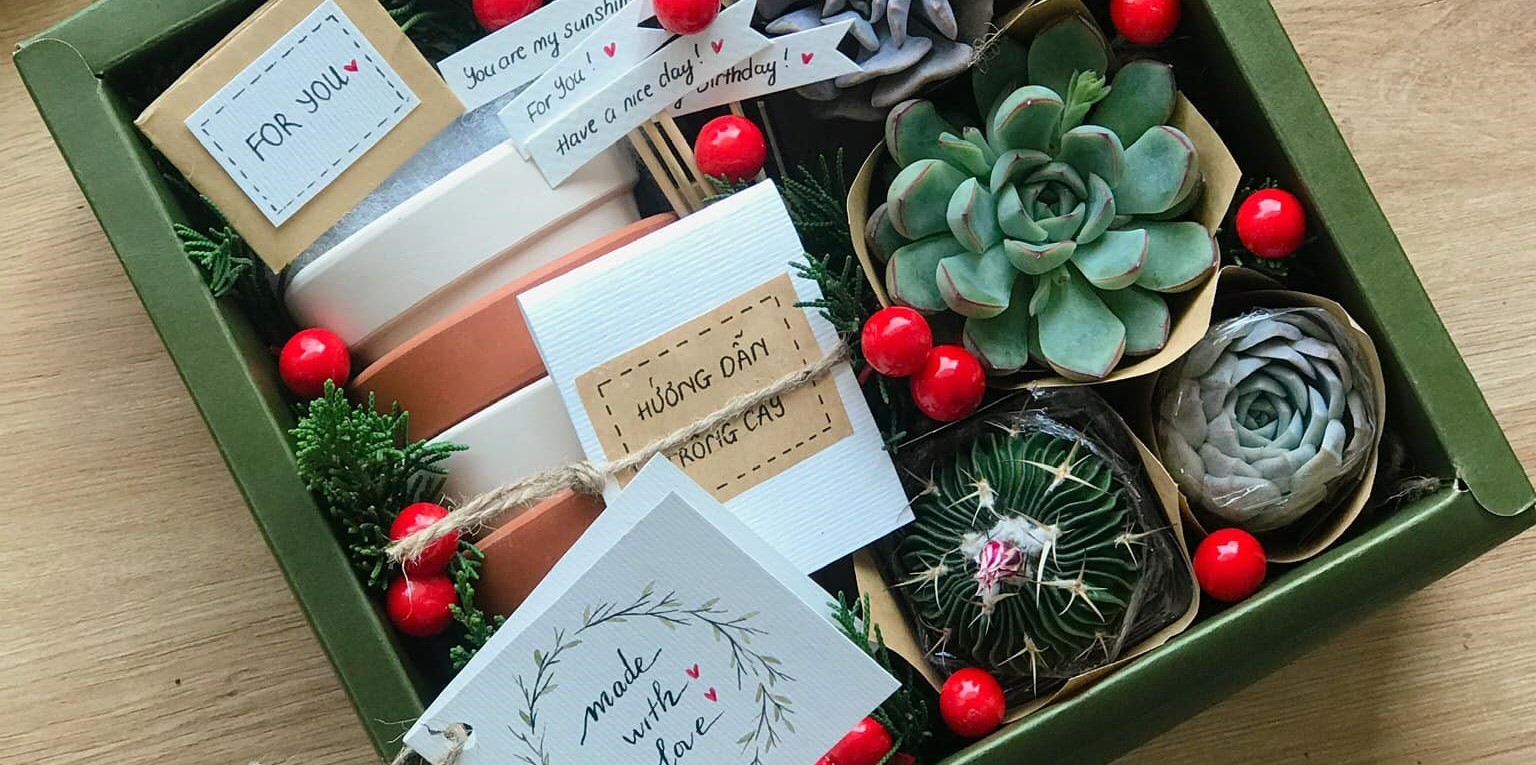 FOR YOU
You are my sunshin
For You!
Have a nice day!
Birthday!
HƯỚNG DẪN
TRỒNG CÂY
made
with
love